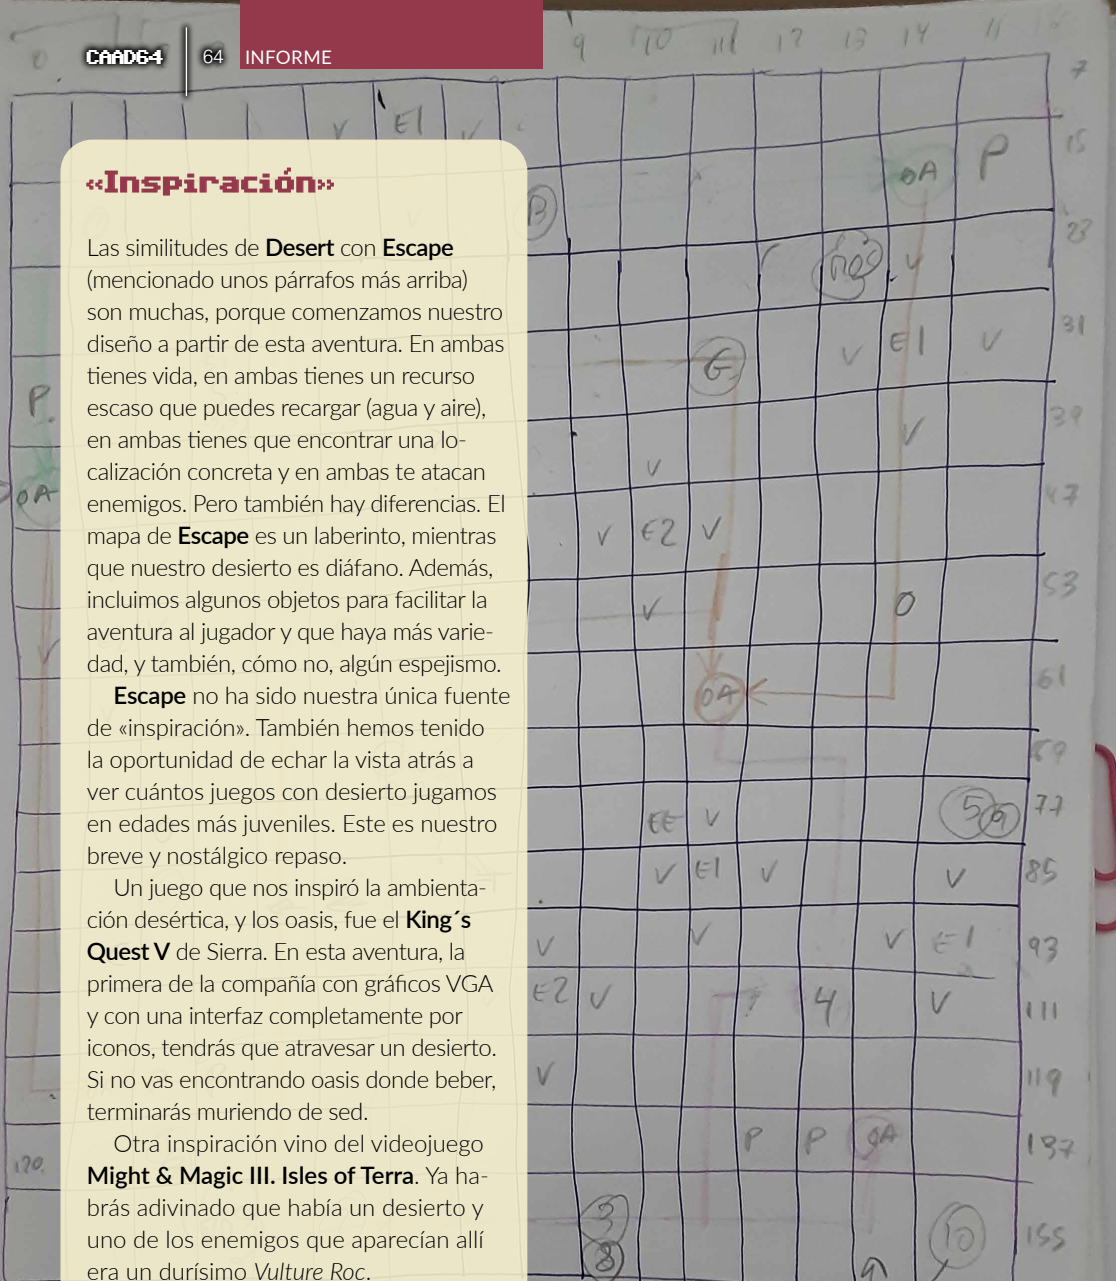 CAAD64 64 INFORME
9 10 11 12 13 14 11
7
E1 V
15
«Inspiración»
OA P
B
23
Las similitudes de Desert con Escape
(mencionado unos párrafos más arriba)
son muchas, porque comenzamos nuestro
diseño a partir de esta aventura. En ambas
tienes vida, en ambas tienes un recurso
escaso que puedes recargar (agua y aire),
en ambas tienes que encontrar una lo-
calización concreta y en ambas te atacan
enemigos. Pero también hay diferencias. El
mapa de Escape es un laberinto, mientras
que nuestro desierto es diáfano. Además,
incluimos algunos objetos para facilitar la
aventura al jugador y que haya más varie-
dad, y también, cómo no, algún espejismo.
Escape no ha sido nuestra única fuente
de «inspiración». También hemos tenido
la oportunidad de echar la vista atrás a
ver cuántos juegos con desierto jugamos
en edades más juveniles. Este es nuestro
breve y nostálgico repaso.
Un juego que nos inspiró la ambienta-
ción desértica, y los oasis, fue el King´s
Quest V de Sierra. En esta aventura, la
primera de la compañía con gráficos VGA
y con una interfaz completamente por
iconos, tendrás que atravesar un desierto.
Si no vas encontrando oasis donde beber,
terminarás muriendo de sed.
Otra inspiración vino del videojuego
Might & Magic III. Isles of Terra. Ya ha-
brás adivinado que había un desierto y
uno de los enemigos que aparecían allí
era un durísimo Vulture Roc.
P
OA
120
V
V E1 V 31
V 39
V
47
V E2 V
V O 53
OA 61
69
EE V 5 9 77
V E1 V V 85
V V V E1 93
E2 V 4 V 111
V 119
P P OA 137
3
8 10 155